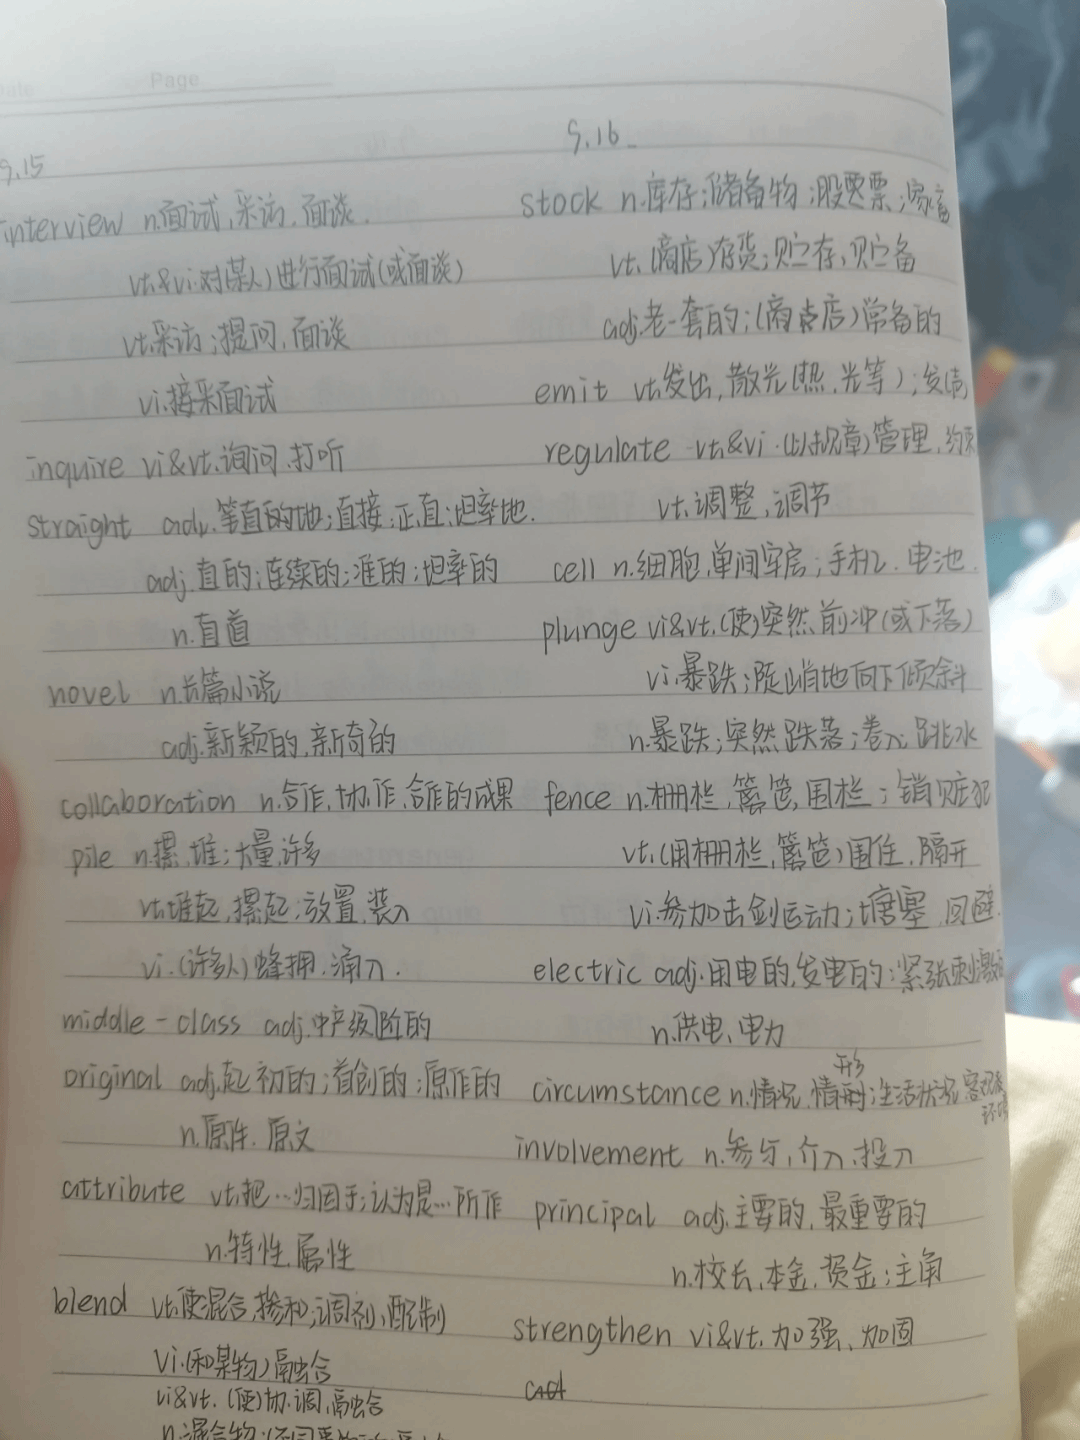 Page
9.15
interview n.面试,采访,面谈.
vt.&vi.对(某人)进行面试(或面谈)
vt.采访;提问,面谈
vi.接采面试
inquire vi&vt.询问.打听
straight adv.笔直的地;直接;正直;坦率地.
adj.直的;连续的;准的;坦率的
n.直道
novel n.长篇小说
adj.新颖的,新奇的
collaboration n.合作,协作,合作的成果
pile n.摞,堆;大量,许多
vt.堆起,摞起;放置,装入
vi.(许多人)蜂拥,涌入.
middle-class adj.中产级阶的
original adj.起初的;首创的;原作的
n.原件.原文
attribute vt.把…归因于;认为是…所作
n.特性,属性
blend vt.使混合,掺和;调剂,配制
vi.(和某物)融合
vi&vt.(使)协调,融合
9.16
stock n.库存;储备物;股票;家畜
vt.(商店)存货;贮存,贮备
adj.老一套的;(商店)常备的
emit vt.发出,散光(热,光等);发(声)
regulate vt.&vi.(以规章)管理,约束
vt.调整,调节
cell n.细胞,单间牢房;手机.电池.
plunge vi&vt.(使)突然前冲(或下落)
vi.暴跌;陡峭地向下倾斜
n.暴跌;突然跌落;卷入,跳水
fence n.栅栏,篱笆,围栏;销赃犯
vt.(用栅栏,篱笆)围住,隔开
vi.参加击剑运动;搪塞,回避.
electric adj.用电的,发电的;紧张刺激
n.供电、电力
circumstance n.情况,情形;生活状况
involvement n.参与,介入,投入
principal adj.主要的,最重要的
n.校长,本金,资金;主角
strengthen vi&vt.加强、加固